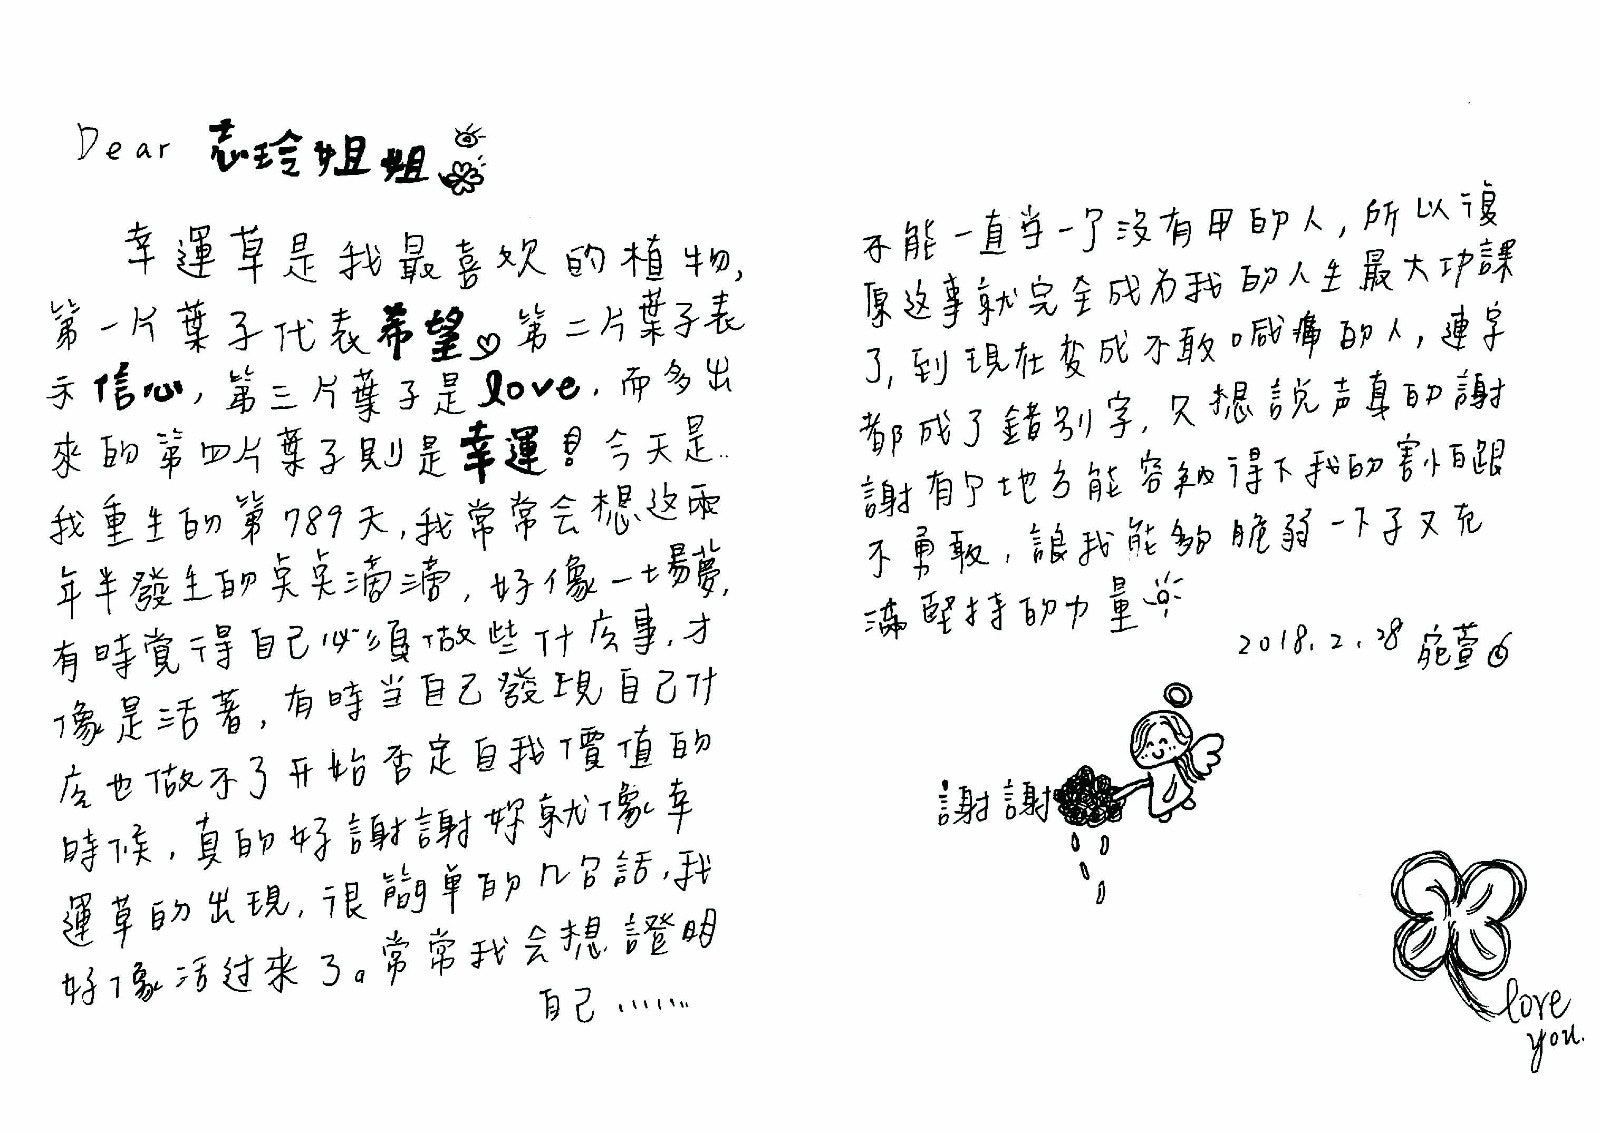 Dear 志玲姐姐
幸運草是我最喜欢的植物,
第一片葉子代表希望♡第二片葉子表
示信心, 第三片葉子是love. 而多出
來的第四片葉子則是幸運! 今天是..
我重生的第789天, 我常常会想这兩
年半發生的点点滴滴, 好像一場夢,
有時覺得自己必須做些什広事, 才
像是活著, 有時当自己發現自己什
広也做不了开始否定自我價值的
時候, 真的好謝謝妳就像幸
運草的出現, 很簡単的几句話, 我
好像活过來了。常常我会想證明
自己......
不能一直当一个沒有甲的人, 所以復
原这事就完全成为我的人生最大功課
了, 到現在変成不敢喊痛的人, 連字
都成了錯别字, 只想説声真的謝
謝有个地方能容納得下我的害怕跟
不勇敢, 讓我能夠脆弱一下子又充
滿堅持的力量
2018.2.28 宛萱
謝謝
love
you.